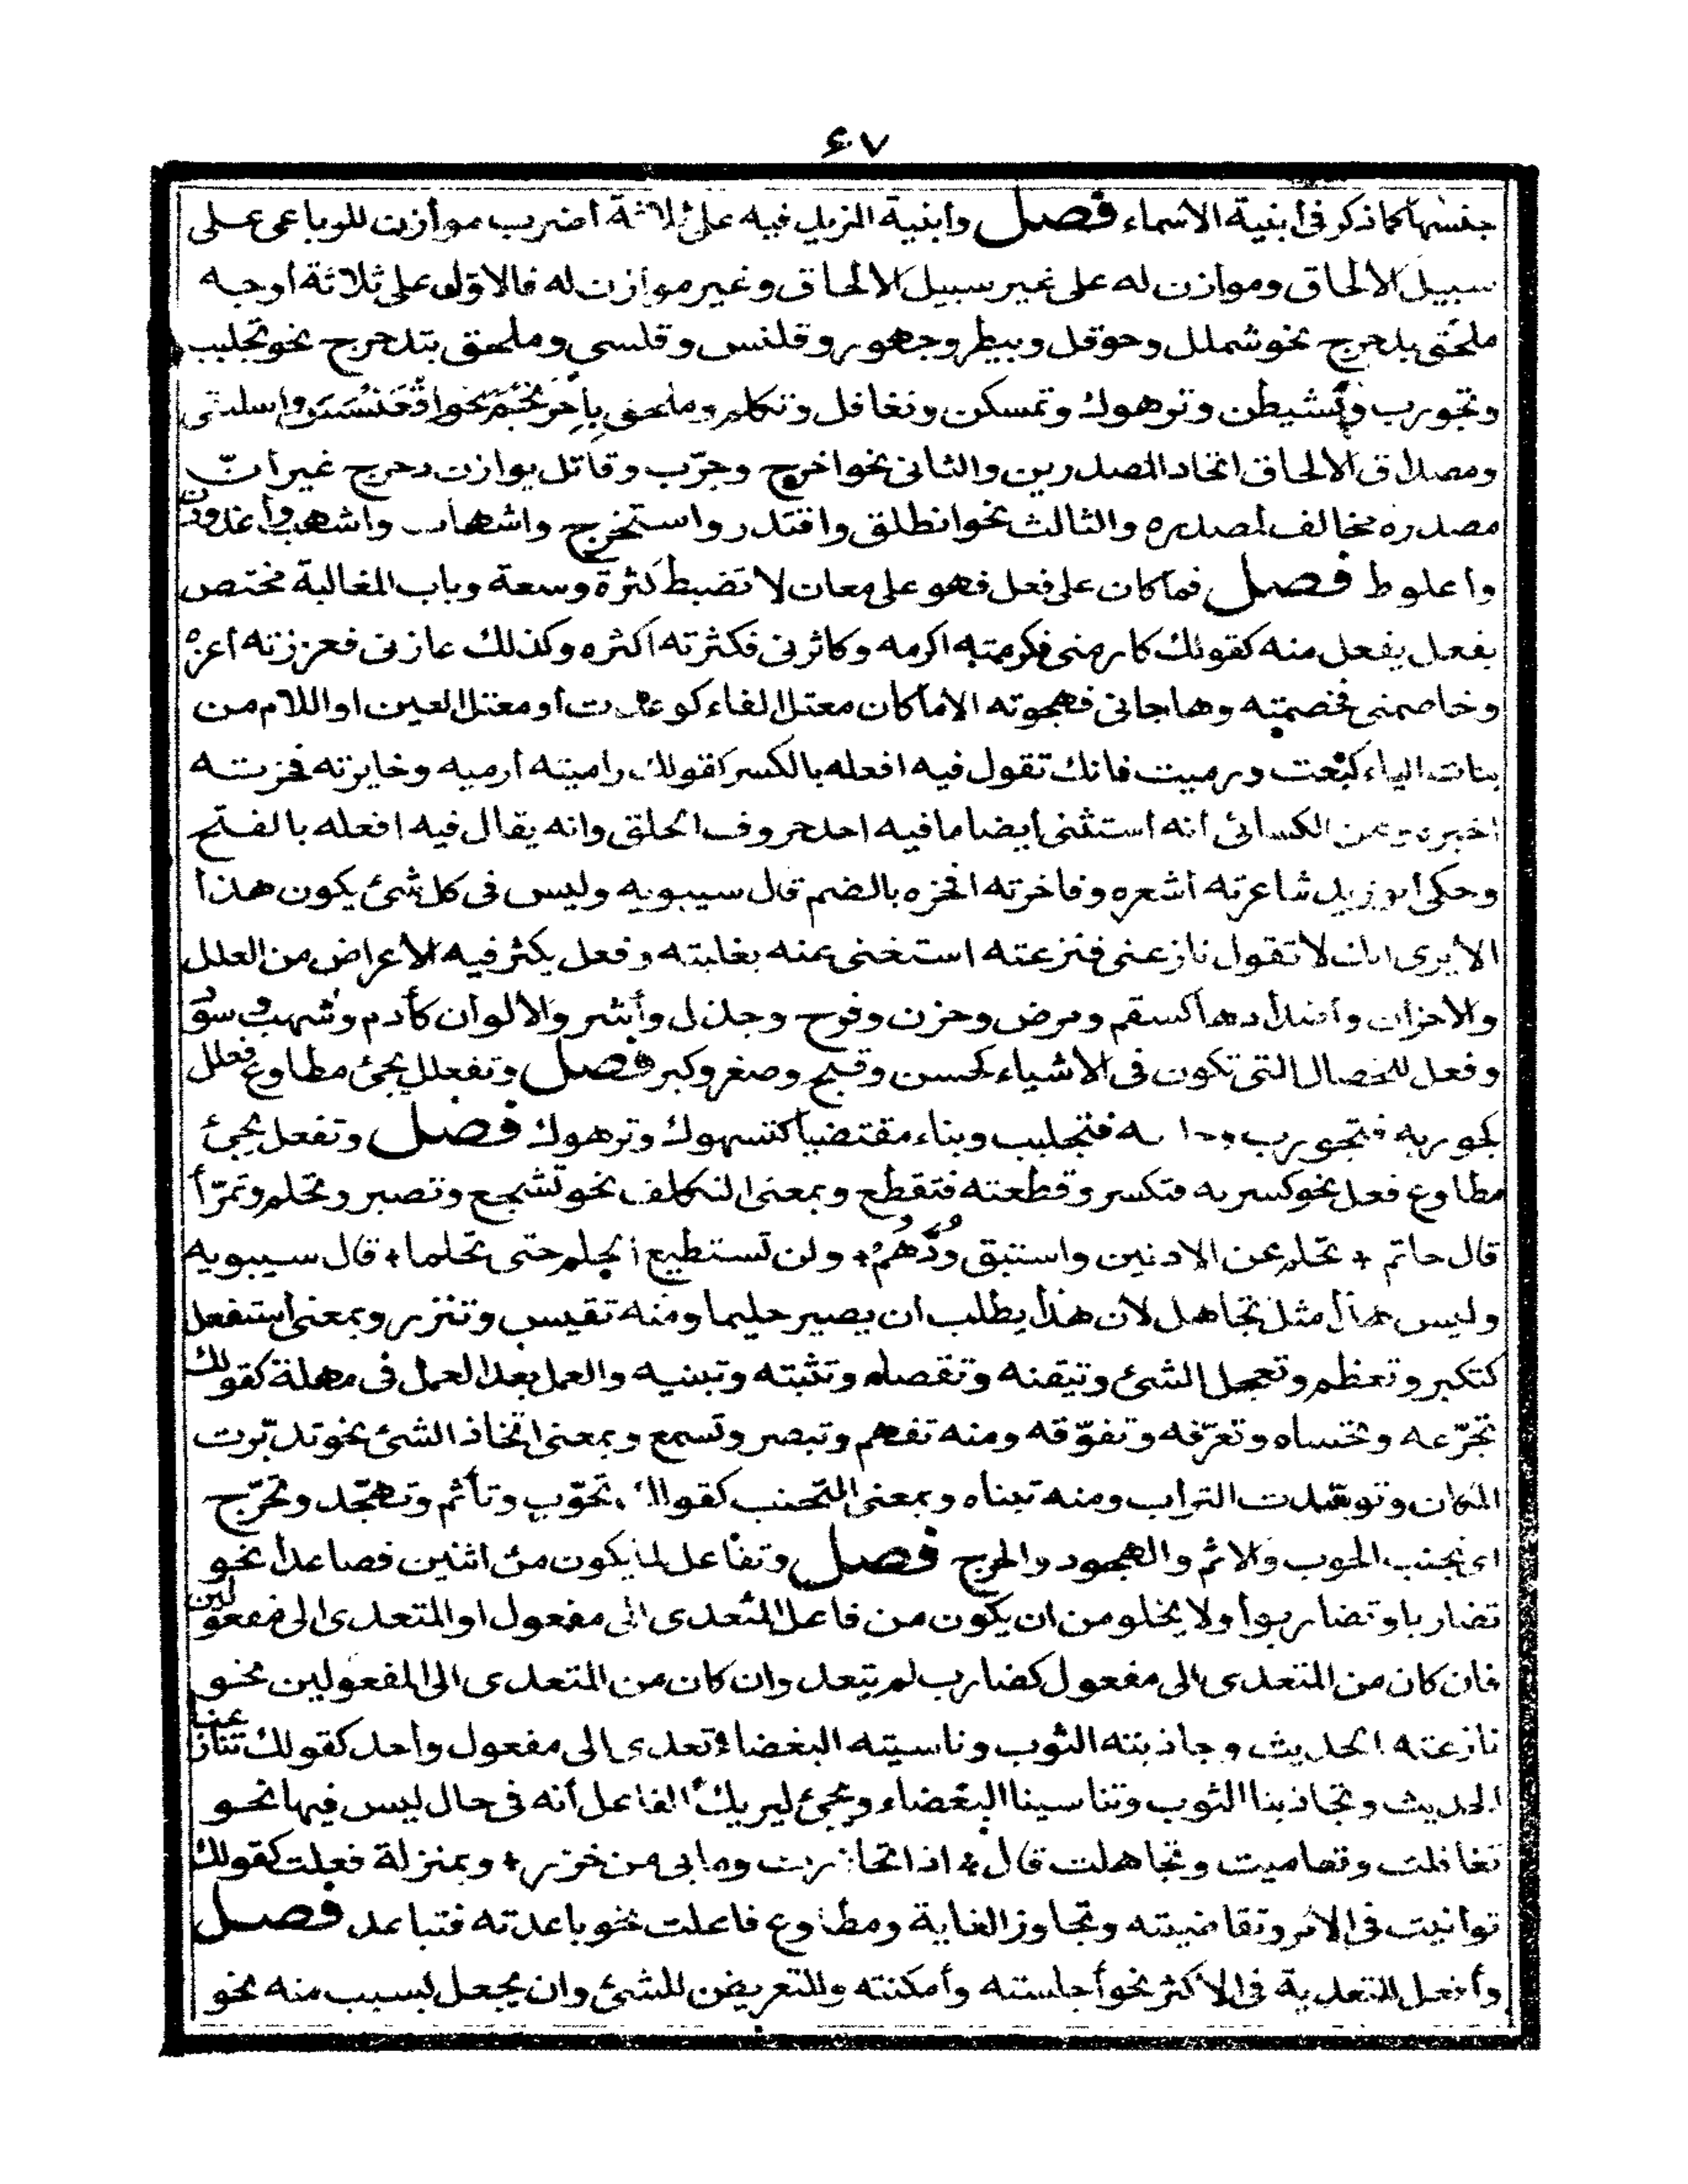 ٤٠٧
جنسها كما ذكر فى أبنية الاسماء فصل وأبنية المزيد فيه على ثلاثة أضرب موازن للرباعى على
سبيل الالحاق وموازن له على غير سبيل الالحاق وغير موازن له فالاول على ثلاثة أوجه
ملحق بدحرج نحو شملل وحوقل وبيطر وجهور وقلنس وقلسى وملحق بتدحرج نحو تجلبب
وتجورب وتشيطن وترهوك وتمسكن وتغافل وتكلم وملحق بإحرنجم نحو اقعنسس واسلنقى
ومصداق الالحاق اتحاد المصدرين والثانى نحو اخرج وجرّب وقاتل يوازن دحرج غير أنّ
مصدره مخالف لمصدره والثالث نحو انطلق واقتدر واستخرج واشهاب واشهب وأغدودن
واعلوط فصل فما كان على فعل فهو على معان لا تضبط كثرة وسعة وباب المغالبة مختص
بفعل يفعل منه كقولك كارمنى فكرمته اكرمه وكاثرنى فكثرته اكثره وكذلك عازنى فعززته اعزه
وخاصمنى فخصمته وهاجانى فهجوته الا ما كان معتل الفاء كوعدت أو معتل العين او اللام من
بنات الياء كبعت ورميت فانك تقول فيه افعله بالكسر كقولك راميته أرميه وخايرته فخرته
اخيره وعن الكسائى أنه استثنى أيضا ما فيه احد حروف الحلق وانه يقال فيه افعله بالفتح
وحكى أبو زيد شاعرته أشعره وفاخرته افخره بالضم قال سيبويه وليس فى كل شئ يكون هذا
الا يرى انك لا تقول نازعنى فنزعته استغنى عنه بغلبته وفعل يكثر فيه الاعراض من العلل
والاحزان وأضدادها كسقم ومرض وحزن وفرح وجذل وأشر والالوان كأدم وشهب وسود
وفعل للخصال التى تكون فى الاشياء كحسن وقبح وصغر وكبر فصل وتفعلل يجئ مطاوع فعلل
كجوربه فتجورب وجلببه فتجلبب وبناء مقتضبا كتسهوك وترهوك فصل وتفعل يجئ
مطاوع فعل نحو كسرته فتكسر وقطعته فتقطع وبمعنى التكلف نحو تشجع وتصبر وتحلم وتمرّأ
قال حاتم + تحلم عن الادنين واستبق ودّهم + ولن تستطيع الحلم حتى تحلما + قال سيبويه
وليس هذا مثل تجاهل لان هذا يطلب ان يصير حليما ومنه تقيس وتنزر وبمعنى استفعل
كتكبر وتعظم وتعجل الشئ وتيقنه وتقصاه وتثبته وتبنيه والعمل بعد العمل فى مهلة كقولك
تجرّعه وتحساه وتعرّفه وتفوّقه ومنه تفهم وتبصر وتسمع وبمعنى اتخاذ الشئ نحو تديّرت
المكان وتوسّدت التراب ومنه تبناه وبمعنى التجنب كقولك تحوّب وتأثم وتهجّد وتحرّج
اى تجنب الحوب والاثم والهجود والحرج فصل وتفاعل لما يكون من اثنين فصاعدا نحو
تضاربا وتضاربوا ولا يخلو من ان يكون من فاعل المتعدى الى مفعول او المتعدى الى مفعولين
فان كان من المتعدى الى مفعول كضارب لم يتعد وان كان من المتعدى الى المفعولين نحو
نازعته الحديث وجاذبته الثوب وناسيته البغضاء تعدى الى مفعول واحد كقولك تنازعنا
الحديث وتجاذبنا الثوب وتناسينا البغضاء ويجئ ليريك الفاعل أنه فى حال ليس فيها نحو
تغافلت وتعاميت وتجاهلت قال + اذا تخازرت وما بى من خزر + وبمنزلة فعلت كقولك
توانيت فى الامر وتقاضيته وتجاوز الغاية ومطاوع فاعلت نحو باعدته فتباعد فصل
وأفعل للتعدية فى الاكثر نحو أجلسته وأمكنته وللتعريض للشئ وان يجعل بسبب منه نحو